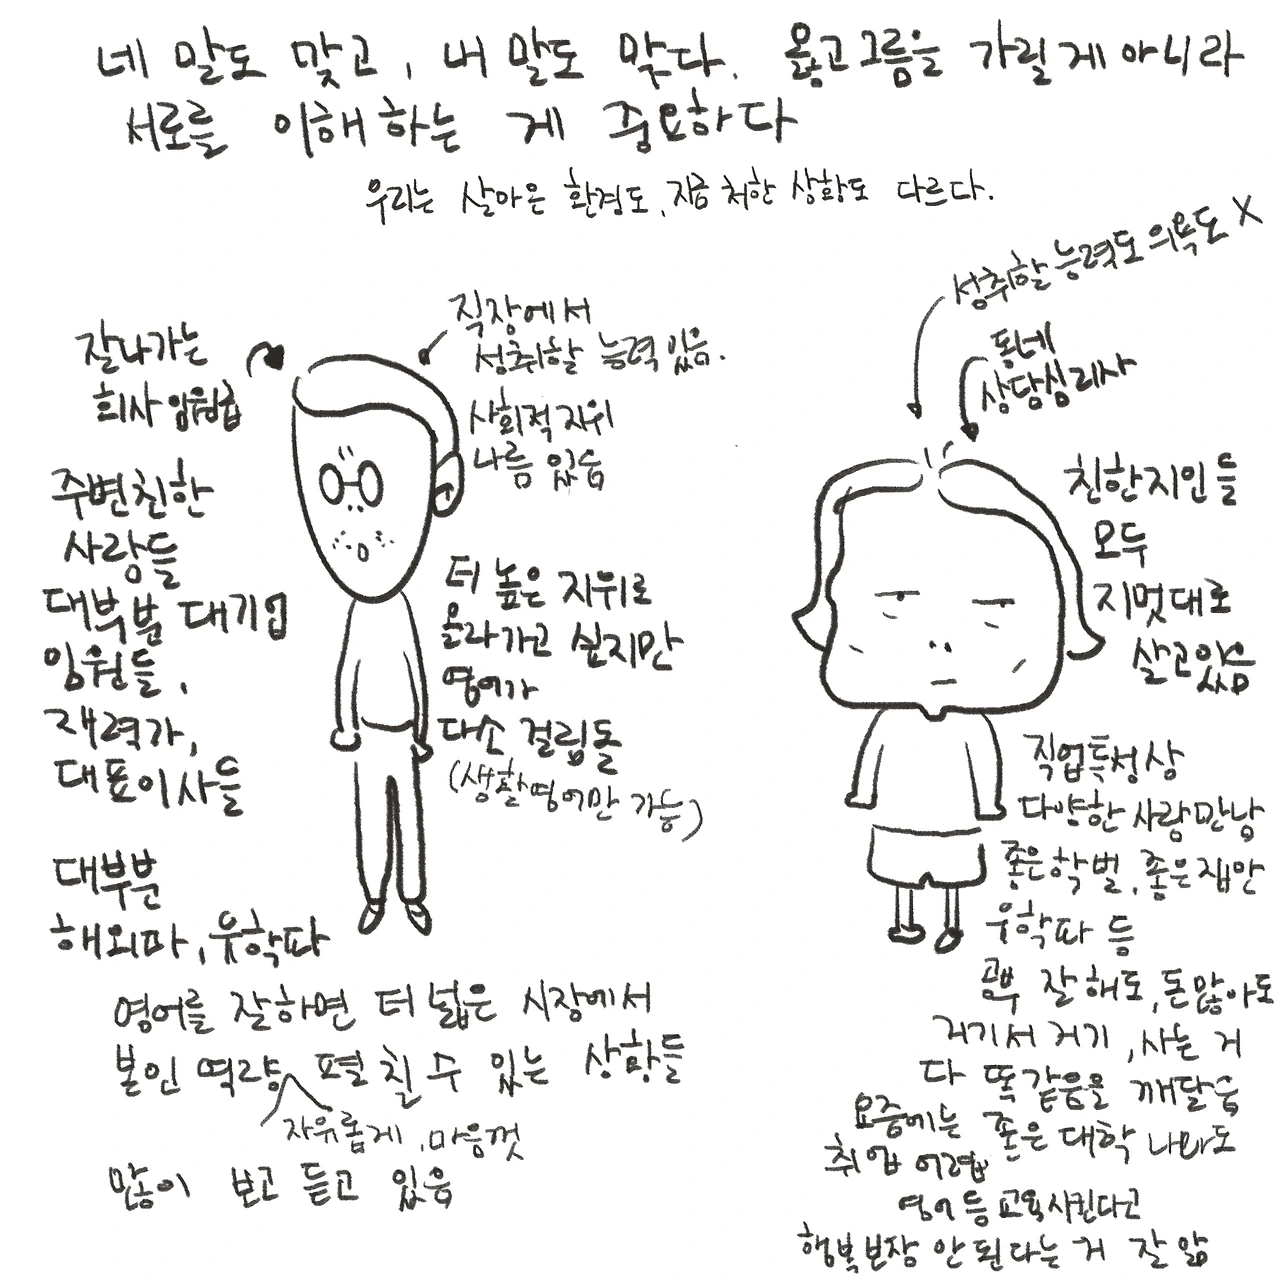 네 말도 맞고, 내 말도 맞다. 옳고그름을 가릴게아니라
서로를 이해하는 게 중요하다
우리는 살아온 환경도, 지금 처한 상황도 다르다.
잘나가는
회사 임원급
직장에서
성취할 능력 있음.
사회적 지위
나름 있음
주변친한
사람들
대부분 대기업
임원들,
재력가,
대표이사들
대부분
해외파, 유학파
더 높은 지위로
올라가고 싶지만
영어가
다소 걸림돌
(생활영어만 가능)
영어를 잘하면 더 넓은 시장에서
본인 역량 펼칠 수 있는 상황들
자유롭게, 마음껏
많이 보고 듣고 있음
성취할 능력도 의욕도 X
동네
상담심리사
친한지인들
모두
지멋대로
살고있음
직업특성상
다양한 사람만남
좋은학벌, 좋은집안
유학파 등
공부 잘해도, 돈많아도
거기서 거기, 사는 거
다 똑같음을 깨달음
요즘에는 좋은 대학 나와도
취업 어렵
영어 등 교육시킨다고
행복보장 안 된다는 거 잘 앎